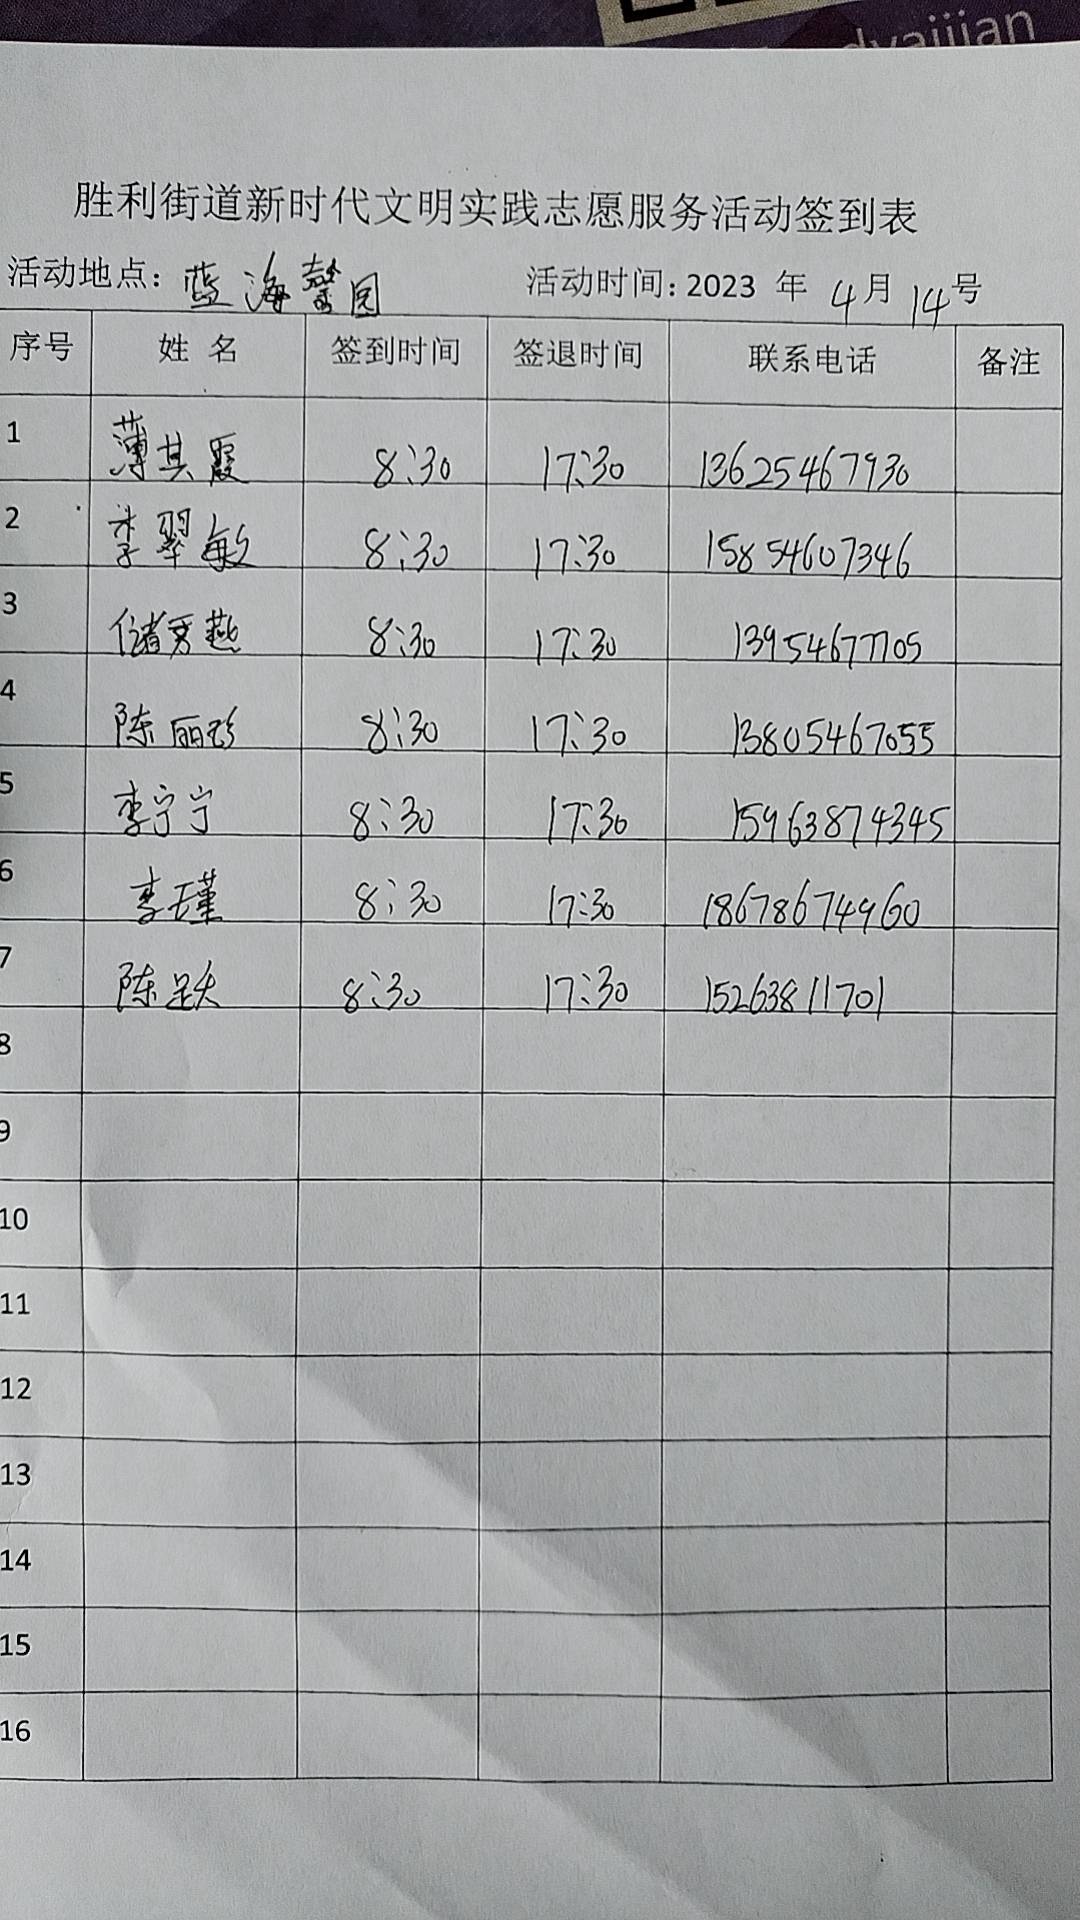 dyaijian
胜利街道新时代文明实践志愿服务活动签到表
活动地点：蓝海馨园 活动时间：2023 年 4月 14号
序号 姓 名 签到时间 签退时间 联系电话 备注
1 薄其霞 8:30 17:30 13625467930
2 李翠敏 8:30 17:30 15854607346
3 储秀燕 8:30 17:30 13954677705
4 陈丽珍 8:30 17:30 13805467055
5 李宁宁 8:30 17:30 15963874345
6 李瑾 8:30 17:30 18678674960
7 陈跃 8:30 17:30 15263811701
8
9
10
11
12
13
14
15
16